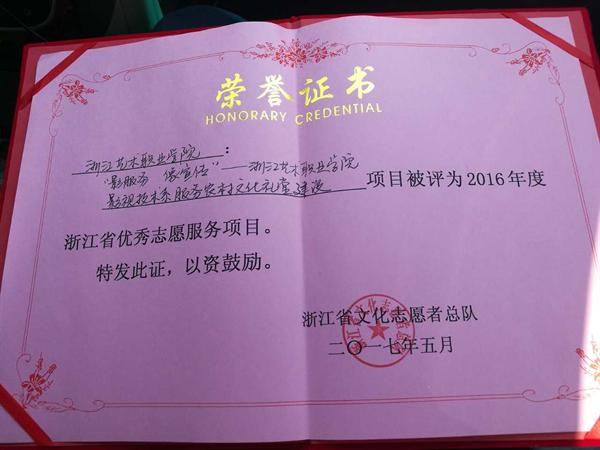 荣誉证书
HONORARY CREDENTIAL
浙江艺术职业学院：
“影服务 像宣传”——浙江艺术职业学院
影视技术系服务农村文化礼堂建设 项目被评为2016年度
浙江省优秀志愿服务项目。
特发此证，以资鼓励。
浙江省文化志愿者总队
二〇一七年五月